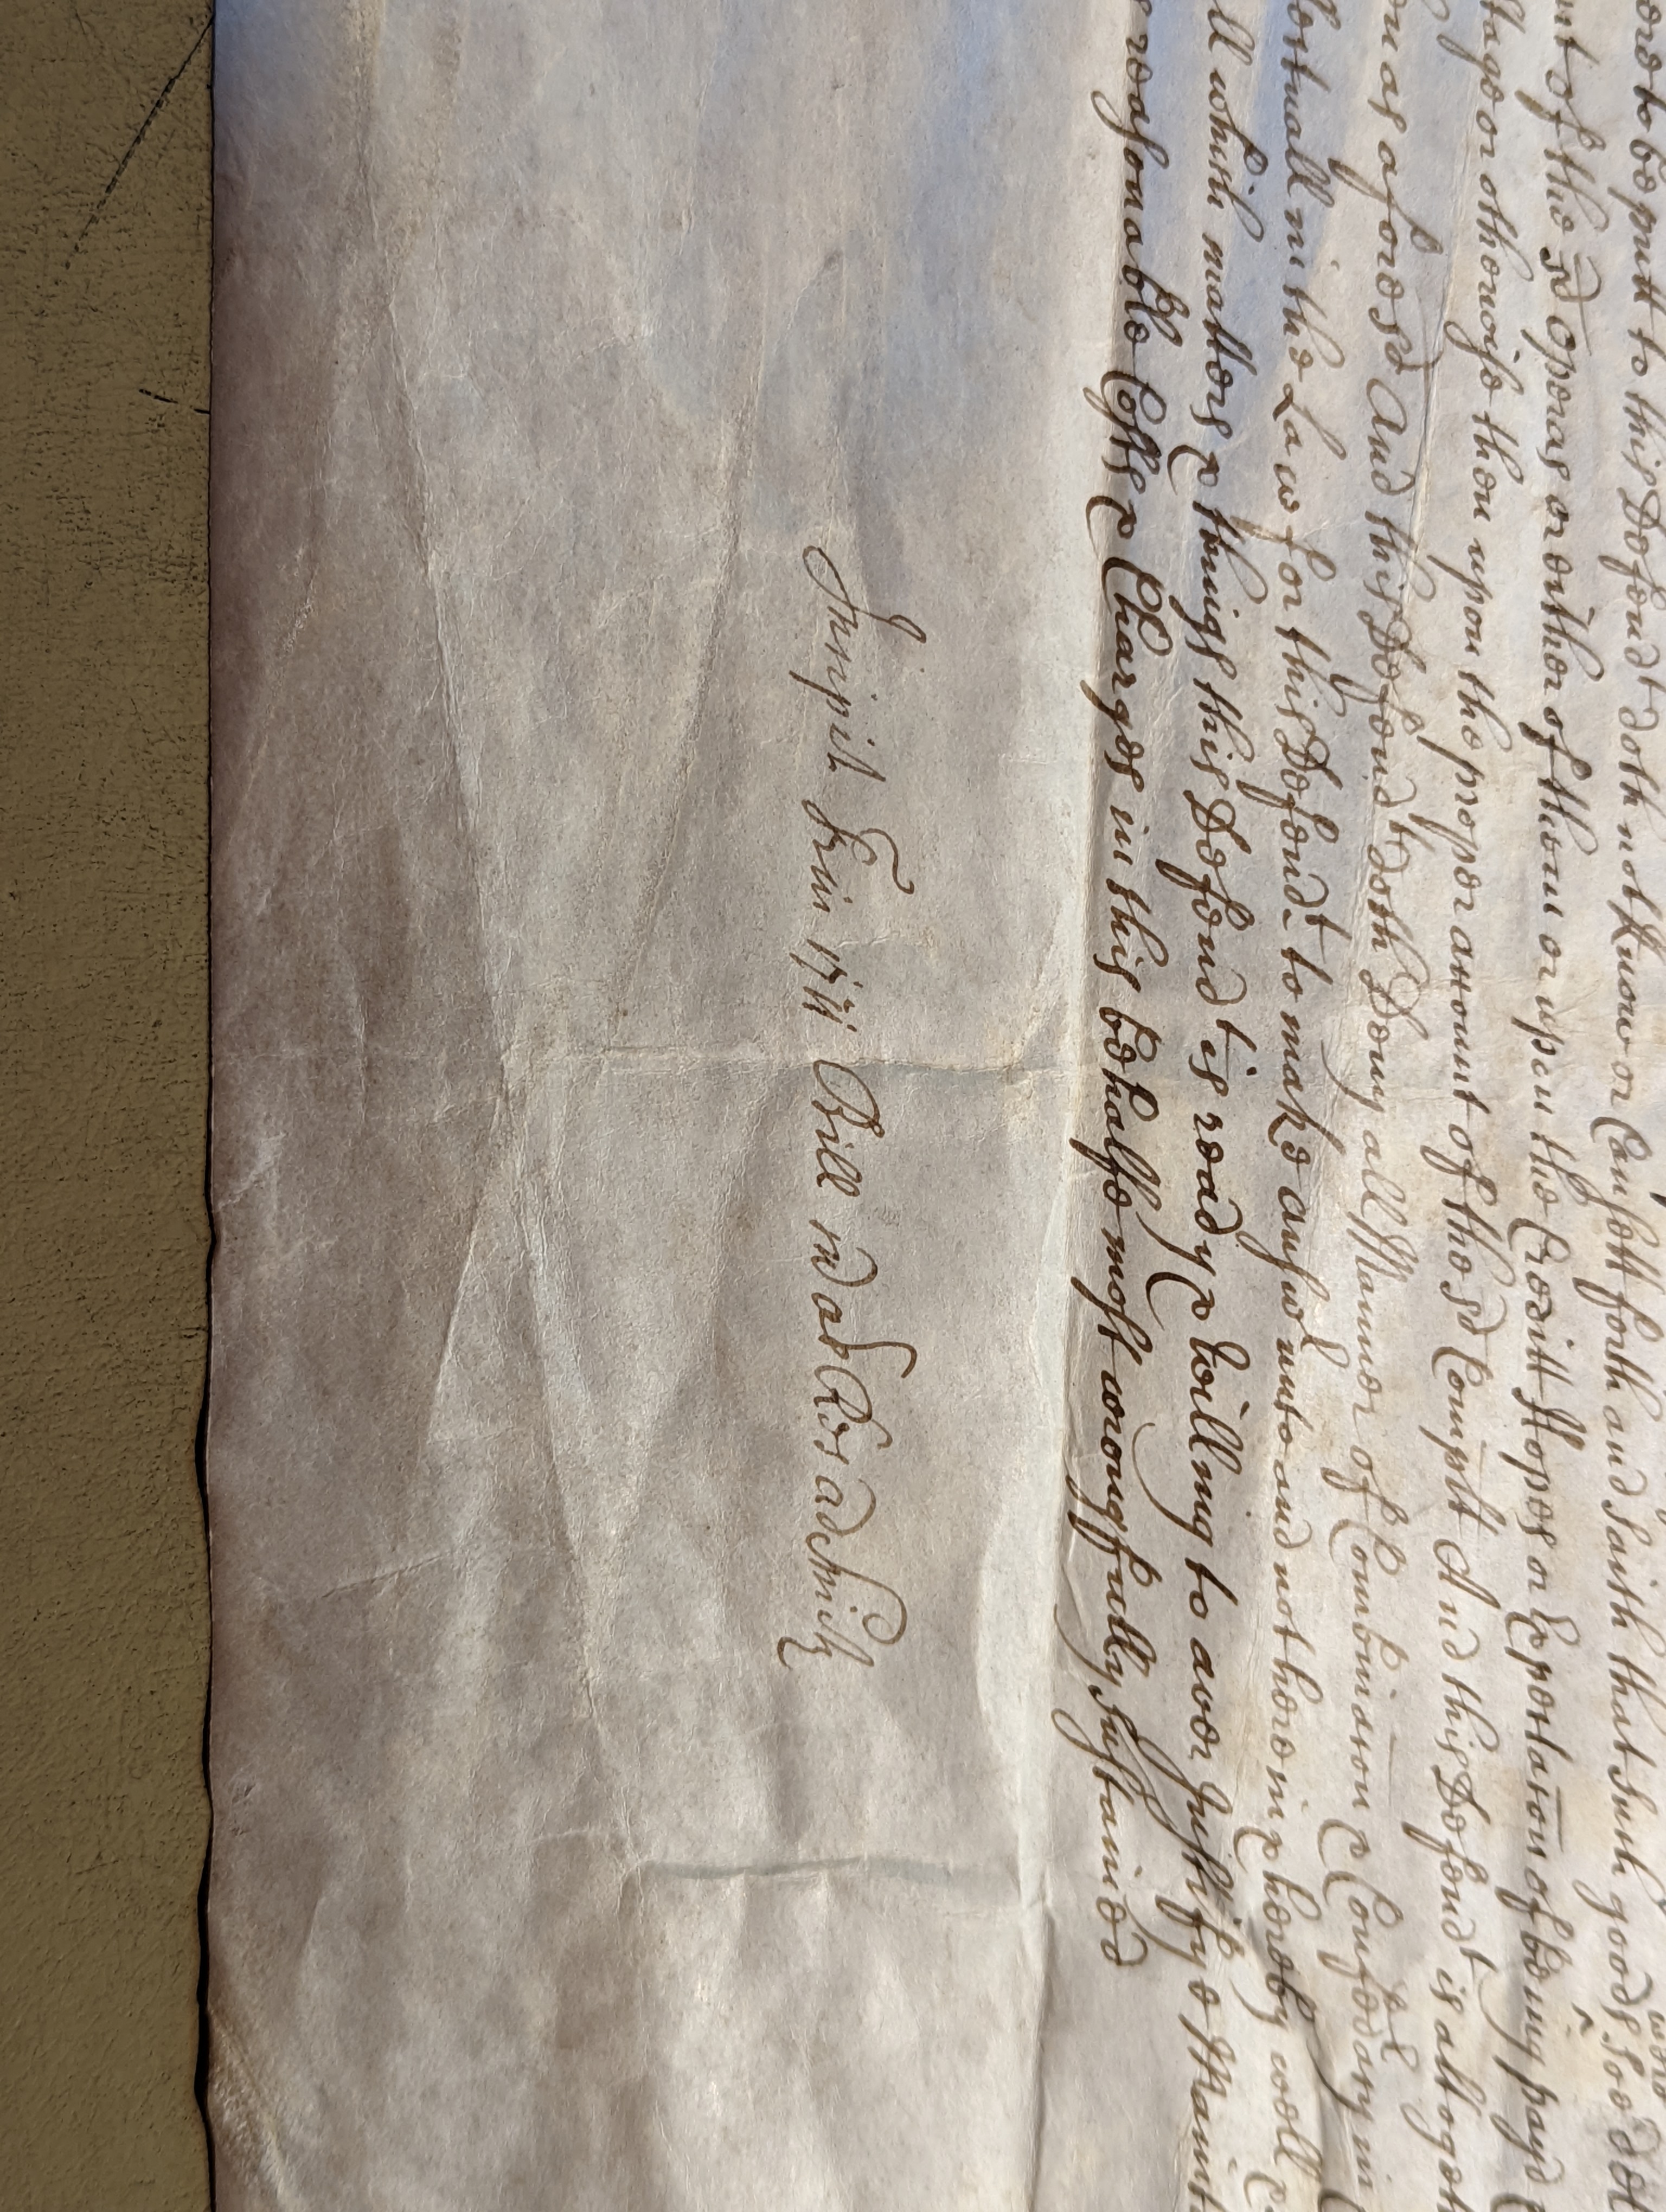 ord to be putt to this Defend.t doth not know or Can sett forth and saith that such goods soe d
nt of the sd Operas or either of them or upon the Creditt Hopes or Expectation of being payd
tage or otherwise then upon the proper account of the sd Complt And this Defendt is altoget
om as aforesd And this Defendt doth Deny all Manner of Combinacon & Confedacy in
ectuall in the Law for this Defendt to make answr unto and not herein & hereby well
ll which matters & things this Defendt is ready & Willing to aver Justifye Maint
reasonable Costs & Charges in this behalfe most wrongfully sustained
Trin 1711 Bill